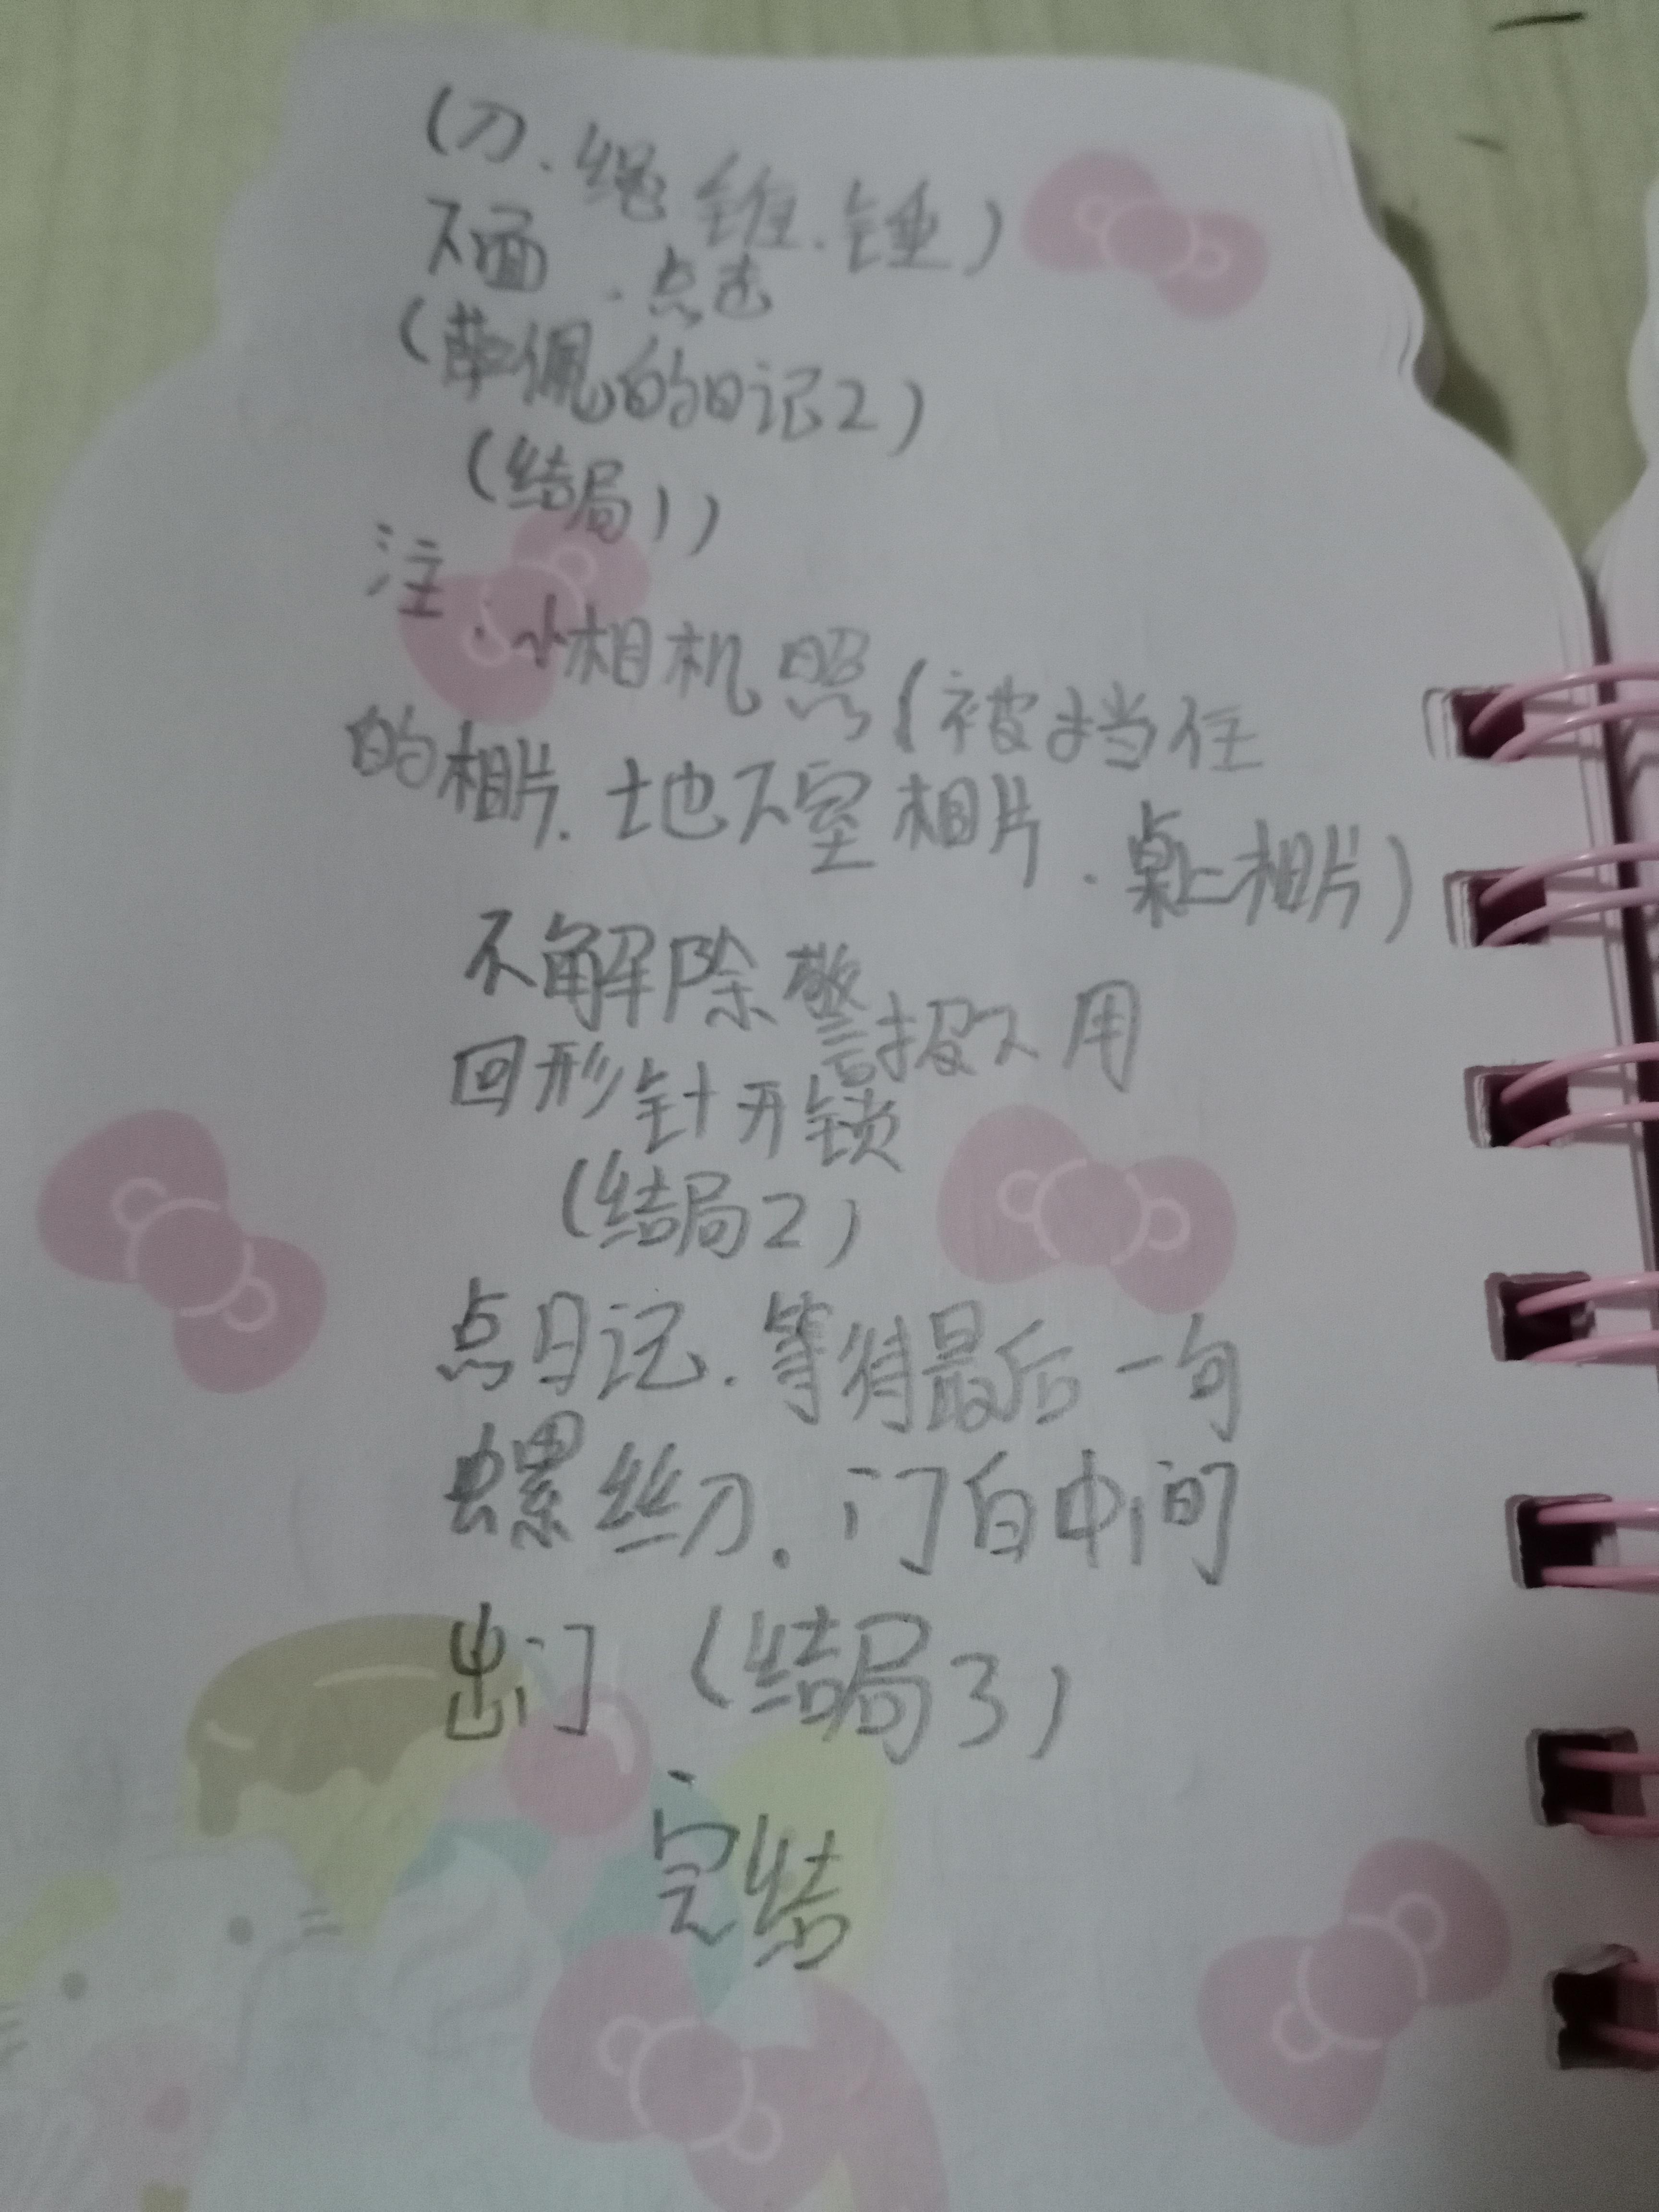 (刀.绳 锥.锤)
下面.点击
(薛佩的日记2)
(结局1)
注.小相机照(被挡住
的相片.地下室相片.桌上相片)
不解除警报不用
回形针开锁
(结局2)
点日记.等待最后一句
螺丝刀.门白中间
出门 (结局3)
完结